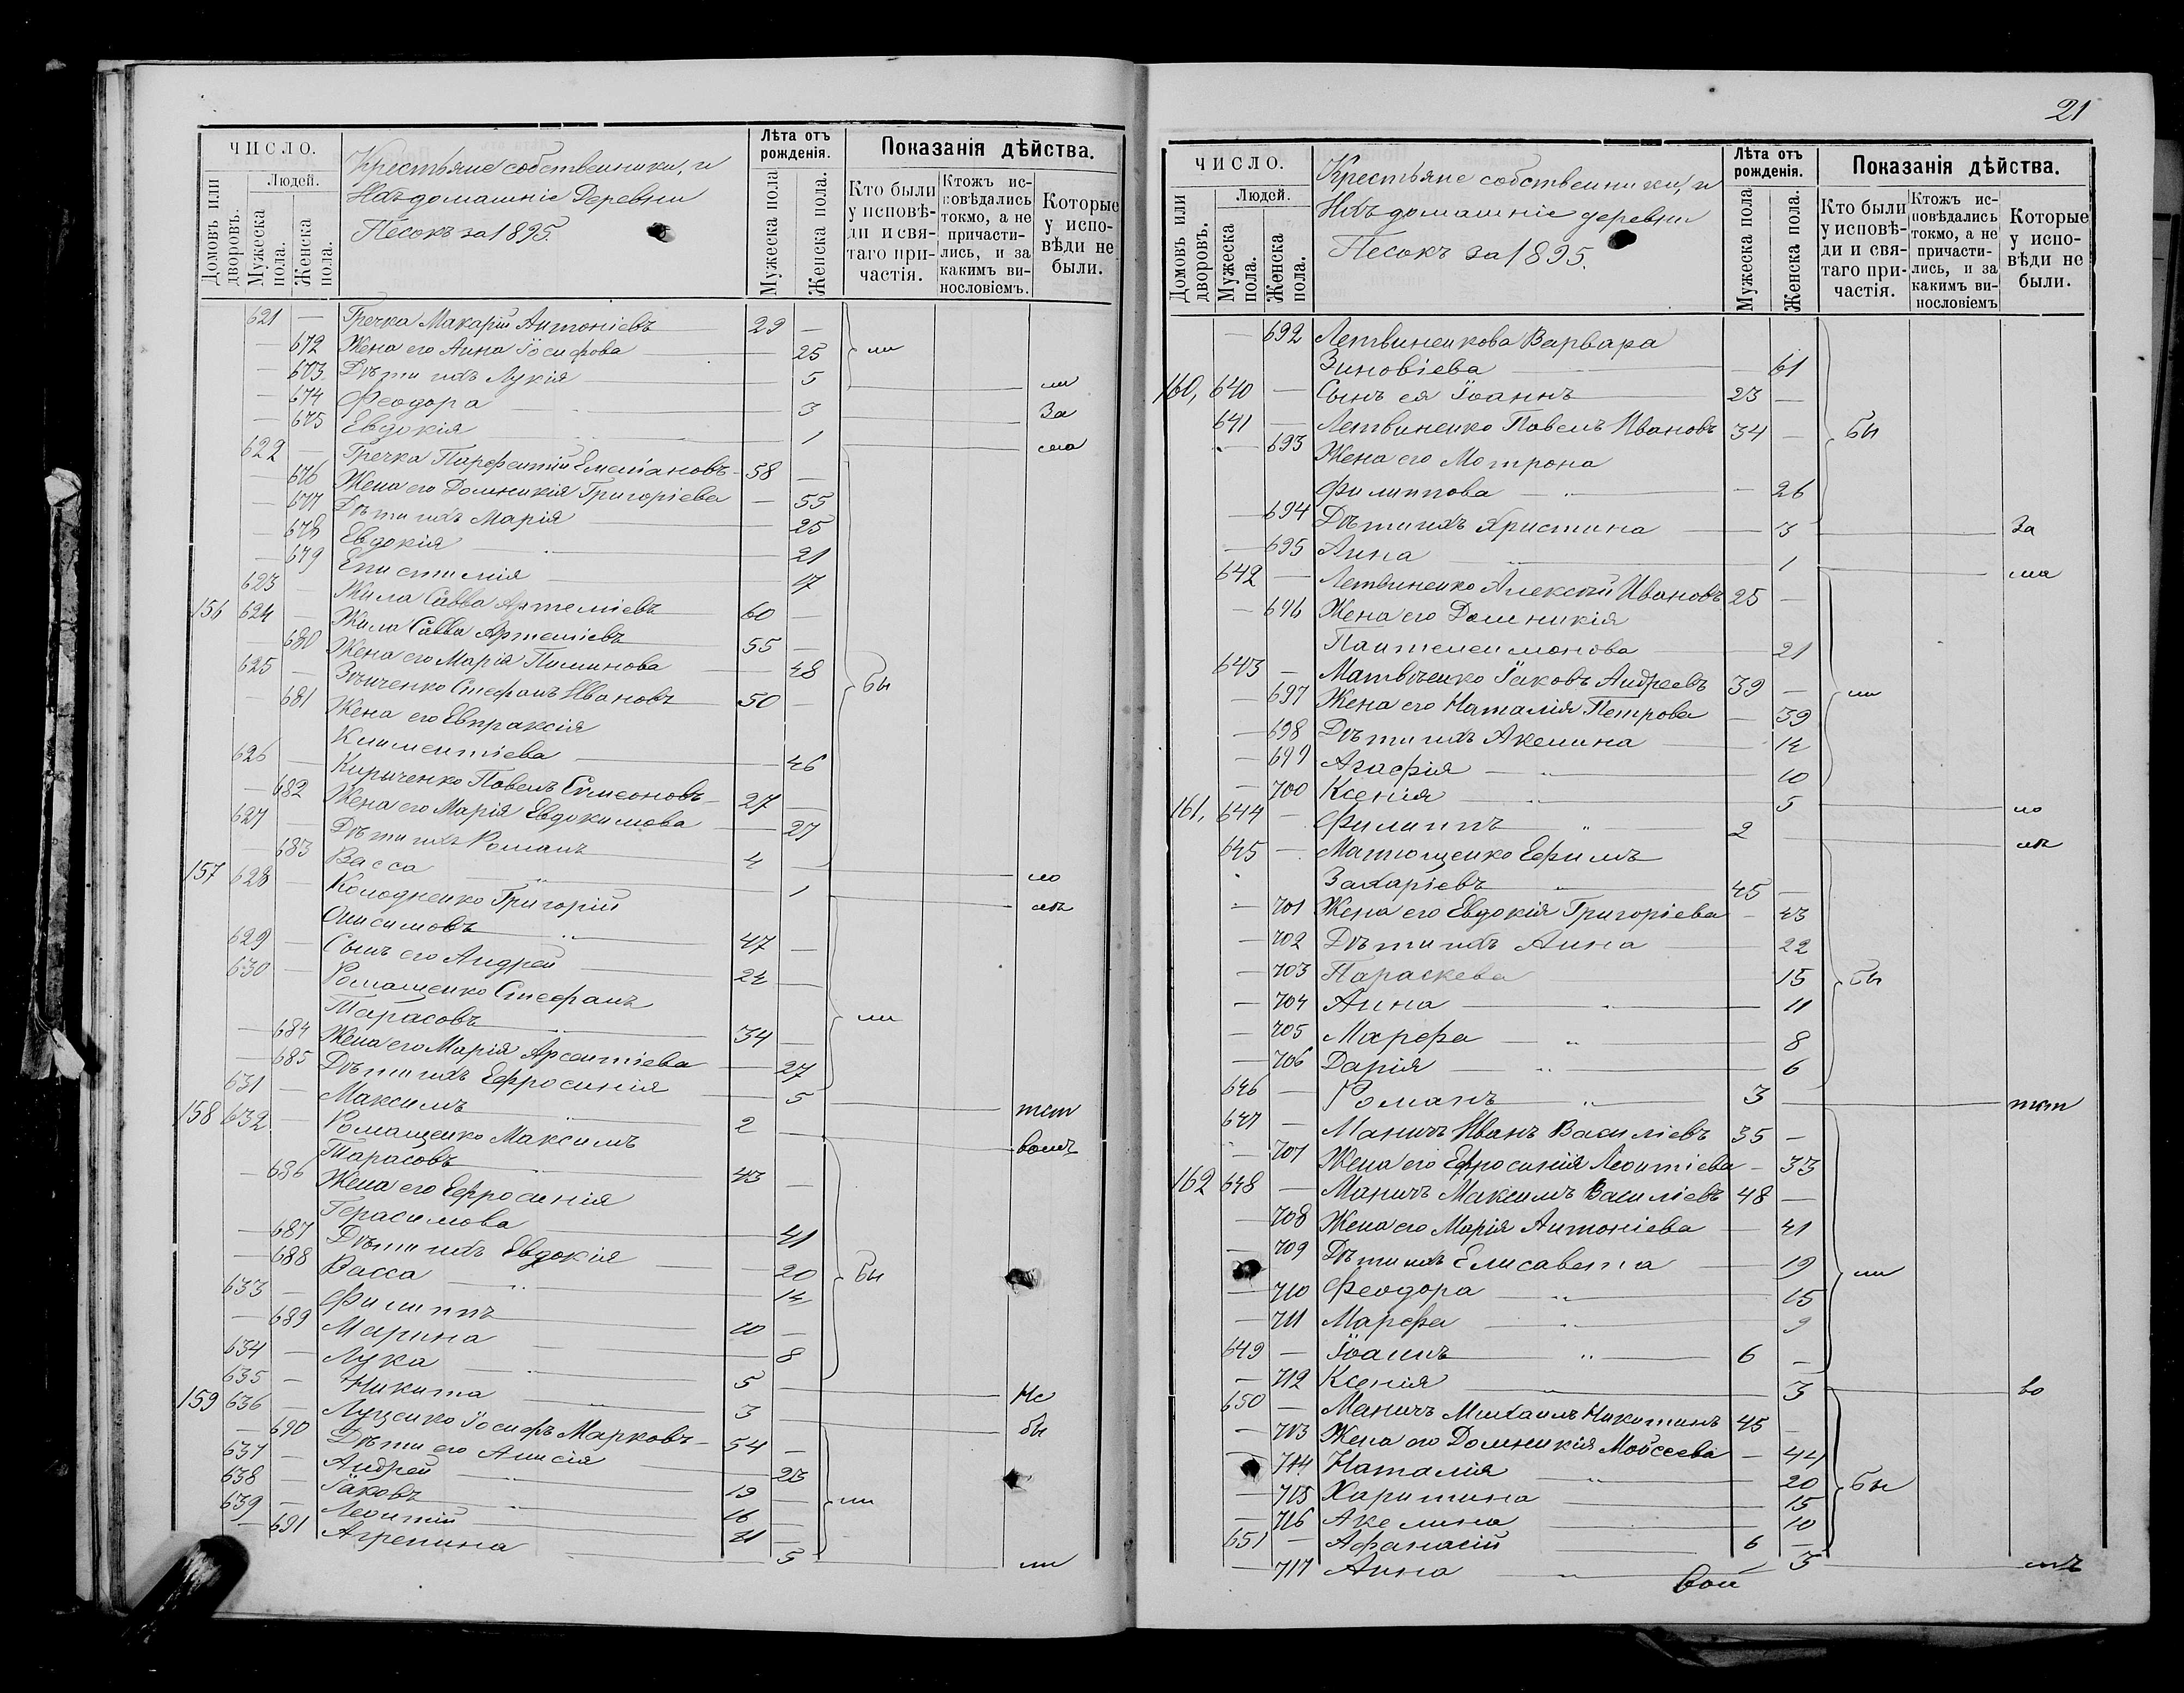 ЧИСЛО.
Людей.
Домовъ или дворовъ.
Мужеска пола.
Женска пола.
Крестьяне собственники, и
Ихъ домашніе Деревни
Песокъ за 1895.
Лѣта отъ рожденія.
Мужеска пола
Женска пола.
Показанія дѣйства.
Кто были у исповѣди и святаго причастія.
Ктожъ исповѣдались токмо, а не причастились, и за какимъ винословіемъ.
Которые у исповѣди не были.
621 — Гречка Макарій Антоніевъ 29 —
— 672 Жена его Анна Іосифова — 25 ли
— 673 Дѣти ихъ Лукія 5 ли
— 674 Феодора 3 За
— 675 Евдокія 1 ма
622 — Гречка Парфентій Емеліановъ 58 —
— 676 Жена его Домникія Григоріева — 55
— 677 Дѣти ихъ Марія 25
— 678 Евдокія 21
— 679 Епистимія 17
623 — Жила Савва Артеміевъ 60 —
156 624 — Жила Савва Артеміевъ 55 —
— 680 Жена его Марія Пиминова 48 бы
625 — Зѣнченко Стефанъ Ивановъ 50 —
— 681 Жена его Евпраксія
Климентіева 46
626 — Кириченко Павелъ Симеоновъ 27 —
— 682 Жена его Марія Евдокимова — 27
627 Дѣти ихъ Романъ 4
— 683 Васса 1 ло
157 628 — Колодненко Григорій лѣ
Онисимовъ 47 —
629 — Сынъ его Андрей 24 —
630 — Ромащенко Стефанъ
Тарасовъ 34 — ли
— 684 Жена его Марія Арсентіева — 27
— 685 Дѣти ихъ Ефросинія 5
631 — Максимъ 2 тст
158 632 — Ромащенко Максимъ вомъ
Тарасовъ 43 —
— 686 Жена его Ефросинія
Герасимова 41
— 687 Дѣти ихъ Евдокія 20 бы
— 688 Васса 14
633 — Филиппъ 10 —
— 689 Марина 8
634 — Лука 5 Не
635 — Никита 3 бы
159 636 — Луценко Іосифъ Марковъ 54 —
— 690 Дѣти его Анисія 23
637 — Андрей 19 —
638 — Іаковъ 16 — ли
639 — Леонтій 11 —
— 691 Агрепина 5 ли
21
ЧИСЛО.
Людей.
Домовъ или дворовъ.
Мужеска пола.
Женска пола.
Крестьяне собственники, и
Ихъ домашніе деревни
Песокъ за 1895.
Лѣта отъ рожденія.
Мужеска пола
Женска пола.
Показанія дѣйства.
Кто были у исповѣди и святаго причастія.
Ктожъ исповѣдались токмо, а не причастились, и за какимъ винословіемъ
Которые у исповѣди не были.
— 692 Летвиненкова Варвара
Зиновіева 61
160, 640 — Сынъ ея Іоаннъ 23 —
641 — Летвиненко Павелъ Ивановъ 34 — бы
— 693 Жена его Мотрона
Филиппова — 26
— 694 Дѣти ихъ Христина 3 За
— 695 Анна 1 ма
642 — Летвиненко Алексѣй Ивановъ 25 —
— 696 Жена его Домникія
Пантелеимонова 21
643 — Матвѣенко Іаковъ Андреевъ 39 — ли
— 697 Жена его Наталія Петрова — 39
— 698 Дѣти ихъ Акелина 14
— 699 Агафія 10
— 700 Ксенія 5 ло
161, 644 — Филиппъ 2 лѣ
645 — Матющенко Ефимъ
Захаріевъ 45 —
— 701 Жена его Евдокія Григоріева — 43
— 702 Дѣти ихъ Анна 22
— 703 Параскева 15 бы
— 704 Анна 11
— 705 Марфа 8
— 706 Дарія 6
646 — Романъ 3 тст
647 — Маничъ Иванъ Василіевъ 35 —
— 707 Жена его Ефросинія Леонтіева — 33
162 648 — Маничъ Максимъ Василіевъ 48 —
— 708 Жена его Марія Антоніева 41
— 709 Дѣти ихъ Елисавета 19 ли
— 710 Феодора 15
— 711 Марфа 9
649 — Іоаннъ 6 —
— 712 Ксенія 3 во
650 — Маничъ Михаилъ Никитинъ 45 —
— 713 Жена его Домникія Мойсеева — 44
— 714 Наталія 20 бы
— 715 Харитина 15
— 716 Акелина 10
651 — Афанасій 6 —
— 717 Анна 3 мъ